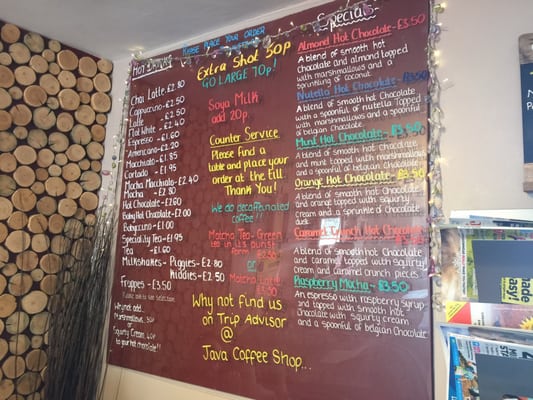 HOT DRINKS
Chai Latte -£2.80
Cappuccino -£2.50
Latte -£2.50
Flat White -£2.40
Espresso -£1.60
Americano -£2.20
Macchiato -£1.85
Cortado -£1.95
Mocha Macchiato -£2.40
Mocha -£2.80
Hot Chocolate -£2.60
Baby Hot Chocolate -£2.00
Babycino -£1.00
Speciality Tea -£1.95
Tea -£1.60
Milkshakes - Biggies -£3.50
Kiddies -£2.50
Frappes -£3.50
Please ask to see selection
Why not add:
Marshmallows 50p
or
Squirty Cream 40p
to your hot chocolate!!
PLEASE PLACE YOUR ORDER
Extra Shot 50p
GO LARGE 70p!
Soya Milk
add 20p
Counter Service
Please find a
table and place your
order at the till.
Thank You!
We do decaffeinated
coffee!!
Matcha Tea - Green
tea in its purest
form £2.50
or
Matcha Latte
Why not find us
on Trip Advisor
@
Java Coffee Shop...
Specials
Almond Hot Chocolate -£3.50
A blend of smooth hot
chocolate and almond topped
with marshmallows and a
sprinkling of coconut
Nutella Hot Chocolate -£3.50
A blend of smooth hot Chocolate
with a spoonful of nutella Topped
with marshmallows and a spoonful
of belgian Chocolate.
Mint Hot Chocolate -£3.50
A blend of smooth hot chocolate
and mint topped with marshmallows
and a spoonful of belgian chocolate.
Orange Hot Chocolate -£3.50
A blend of smooth hot Chocolate
and orange topped with squirty
cream and a sprinkle of chocolate
dust
Caramel Crunch Hot Chocolate -£3.50
A blend of smooth hot Chocolate
and caramel topped with squirty
cream and caramel crunch pieces!
Raspberry Mocha -£3.50
An espresso with raspberry syrup
and topped with smooth hot
Chocolate with squirty cream
and a spoonful of belgian Chocolate
made
easy!